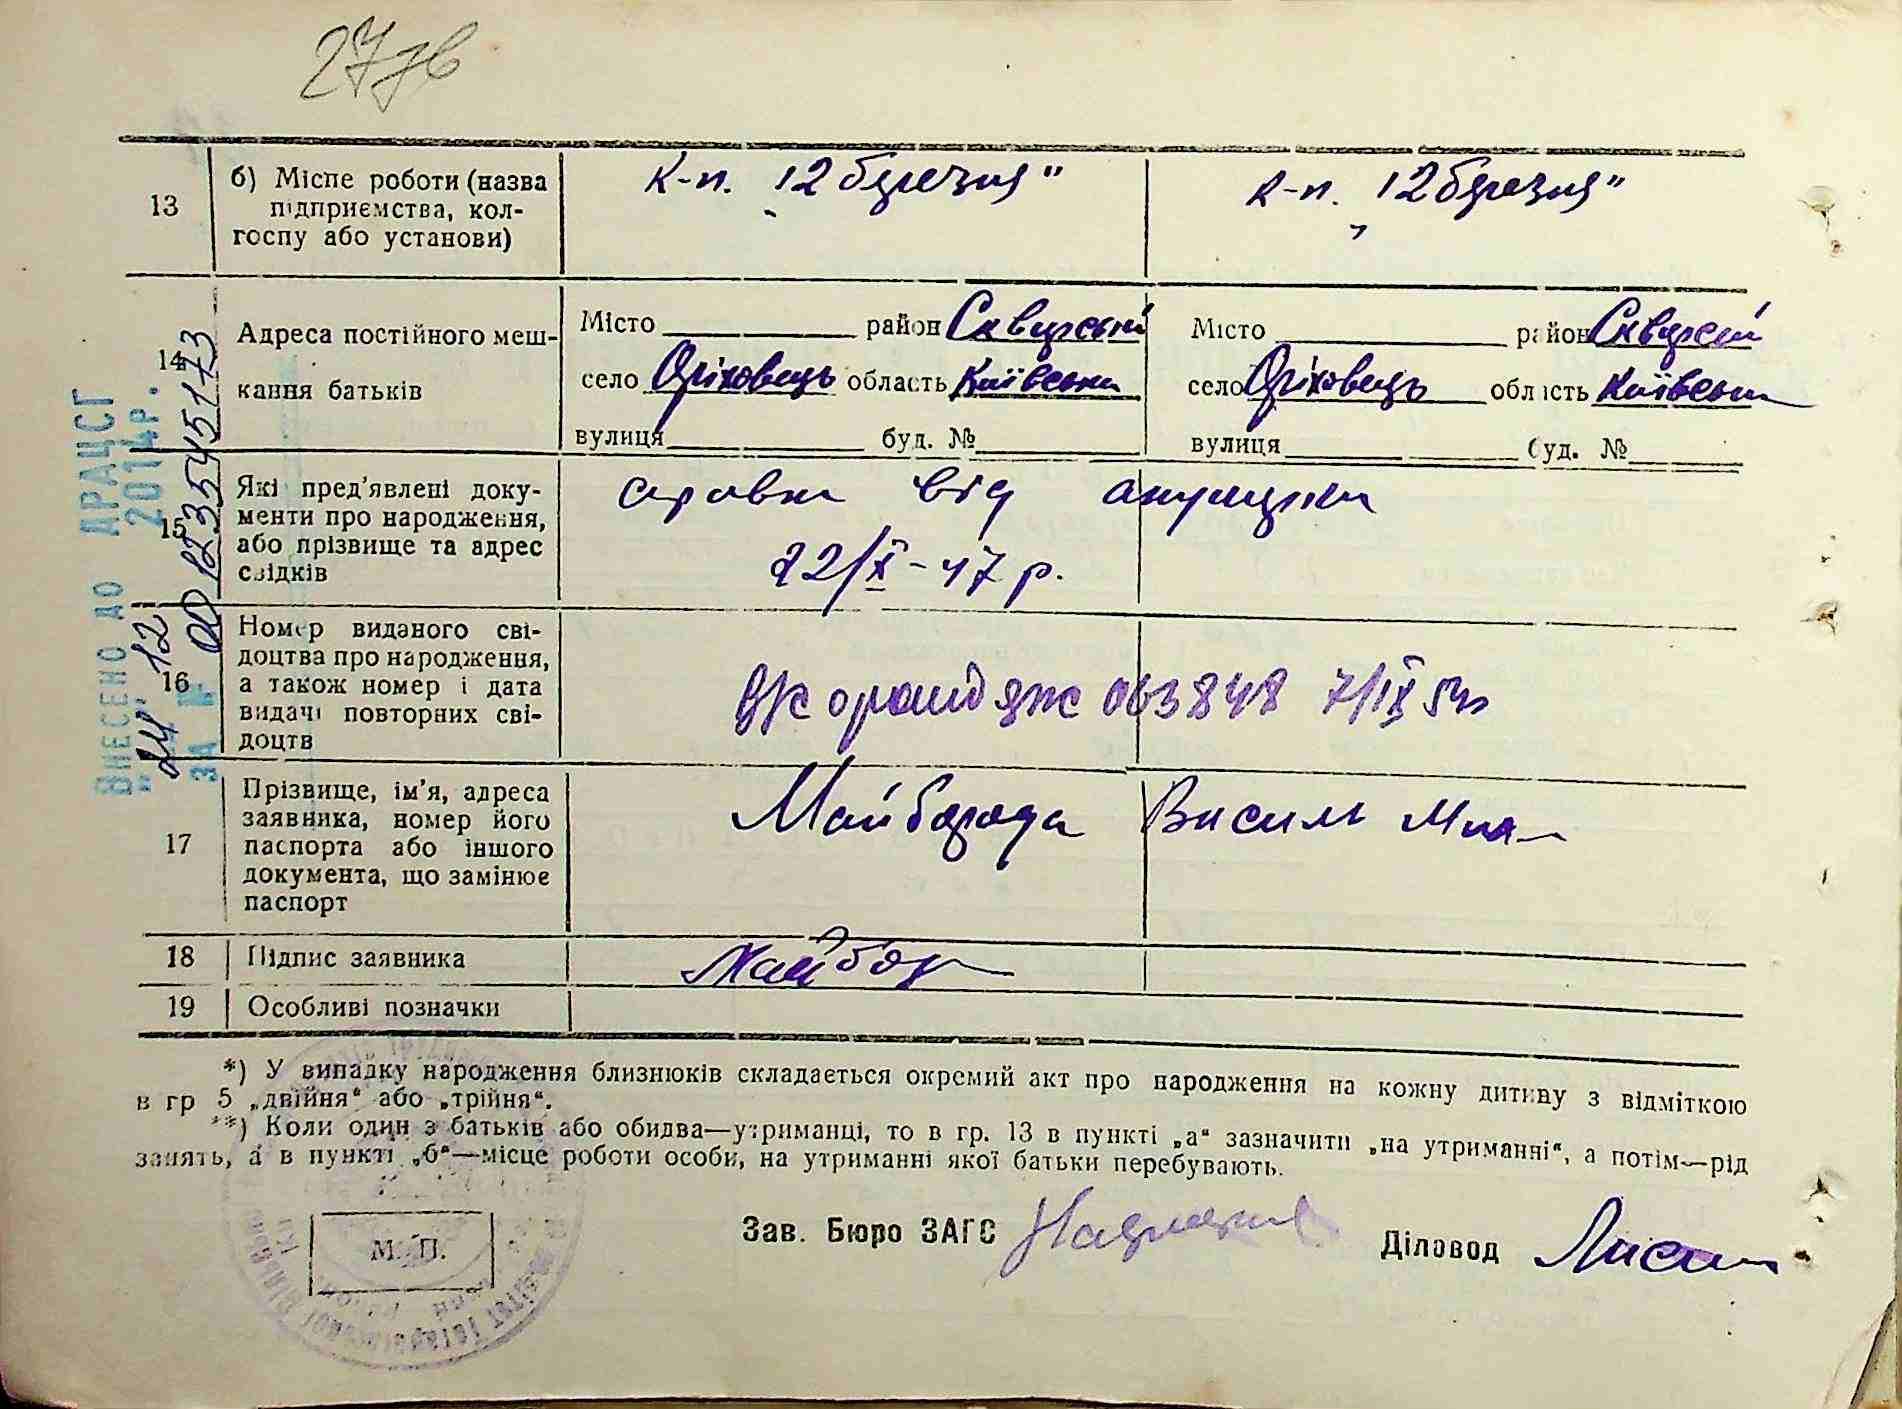 277в
13 б) Місце роботи (назва к-п. „12 березня" к-п. „12 березня"
підприємства, кол-
госпу або установи)
14 Адреса постійного меш-
кання батьків
Місто район Сквирські Місто район
село Оріховець область Київська село Оріховець область Київська
вулиця буд. № вулиця буд. №
15 Які пред'явлені доку-
менти про народження,
або прізвище та адрес
свідків
справка від акушерки
22/X-47 р.
16 Номер виданого сві-
доцтва про народження,
а також номер і дата
видачі повторних сві-
доцтв
063848 7/IX 54
17 Прізвище, ім'я, адреса
заявника, номер його
паспорта або іншого
документа, що замінює
паспорт
Майборода Василь
18 Підпис заявника Майбор
19 Особливі позначки
*) У випадку народження близнюків складається окремий акт про народження на кожну дитину з відміткою
в гр 5 „двійня" або „трійня".
**) Коли один з батьків або обидва—утриманці, то в гр. 13 в пункті „а" зазначити „на утриманні", а потім—рід
занять, а в пункті „б"—місце роботи особи, на утриманні якої батьки перебувають.
М. П.
Зав. Бюро ЗАГС
Діловод
ВНЕСЕНО ДО ДРАЦСГ
"24" 12 2014р.
ЗА № 00123545173